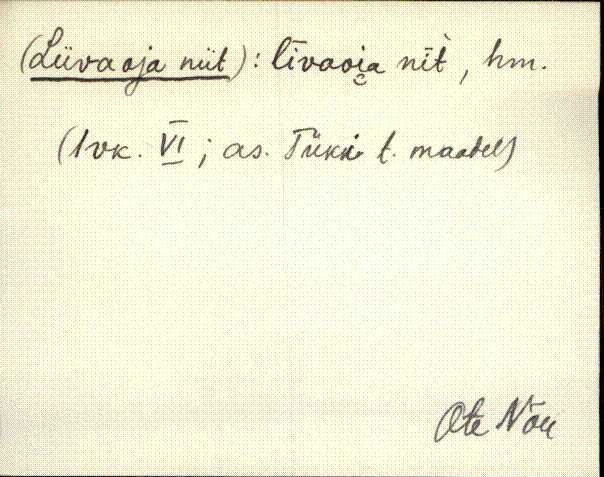 (Liivaoja niit): līvaoi̯a nīt̀, hm.
(1vk. VI; as. Tükki t. maadel)
Ote Nõu